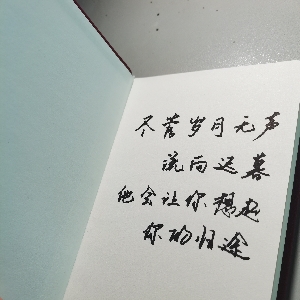 尽管岁月无声
流向迟暮
他会让你想起
你的归途